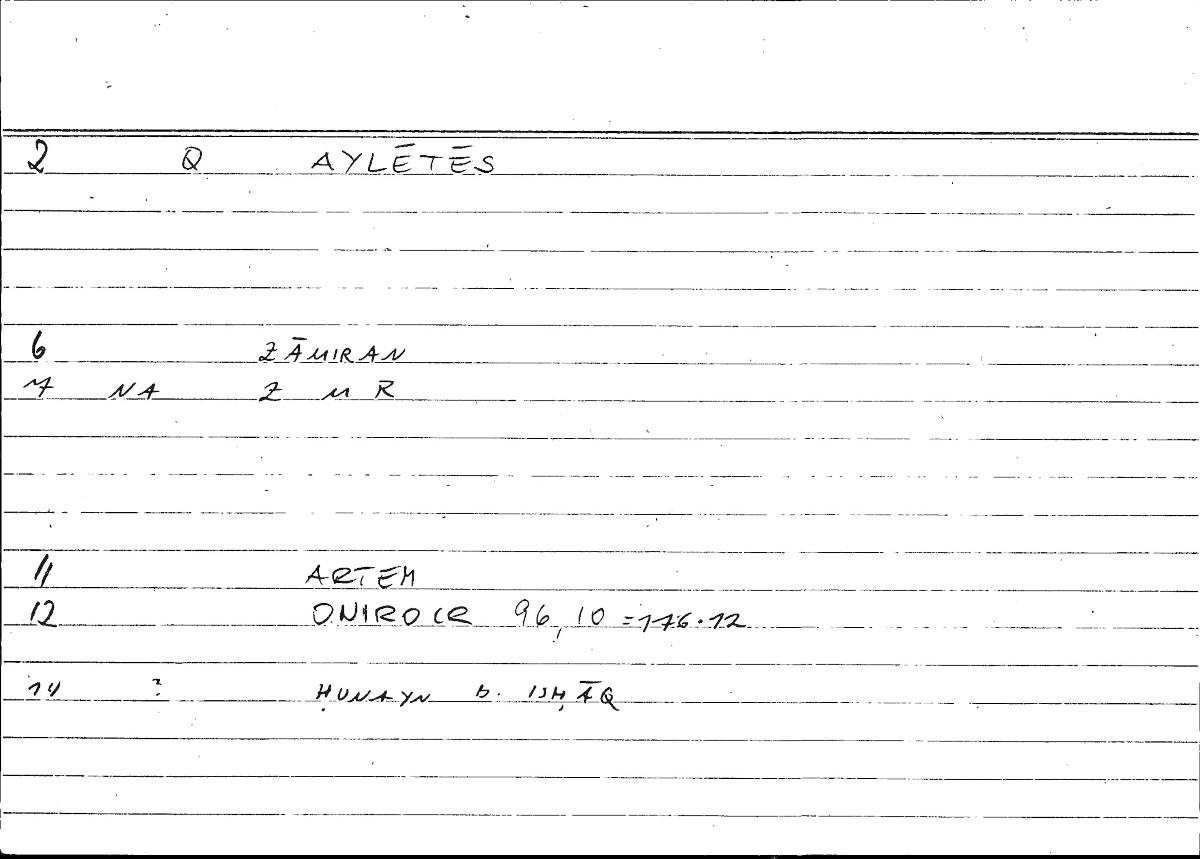 2 Q AYLĒTĒS
6 ZĀMIRAN
7 NA Z M R
11 ARTEM
12 ONIROCR 96,10 = 176.12
14 ? ḤUNAYN b. ISḤĀQ